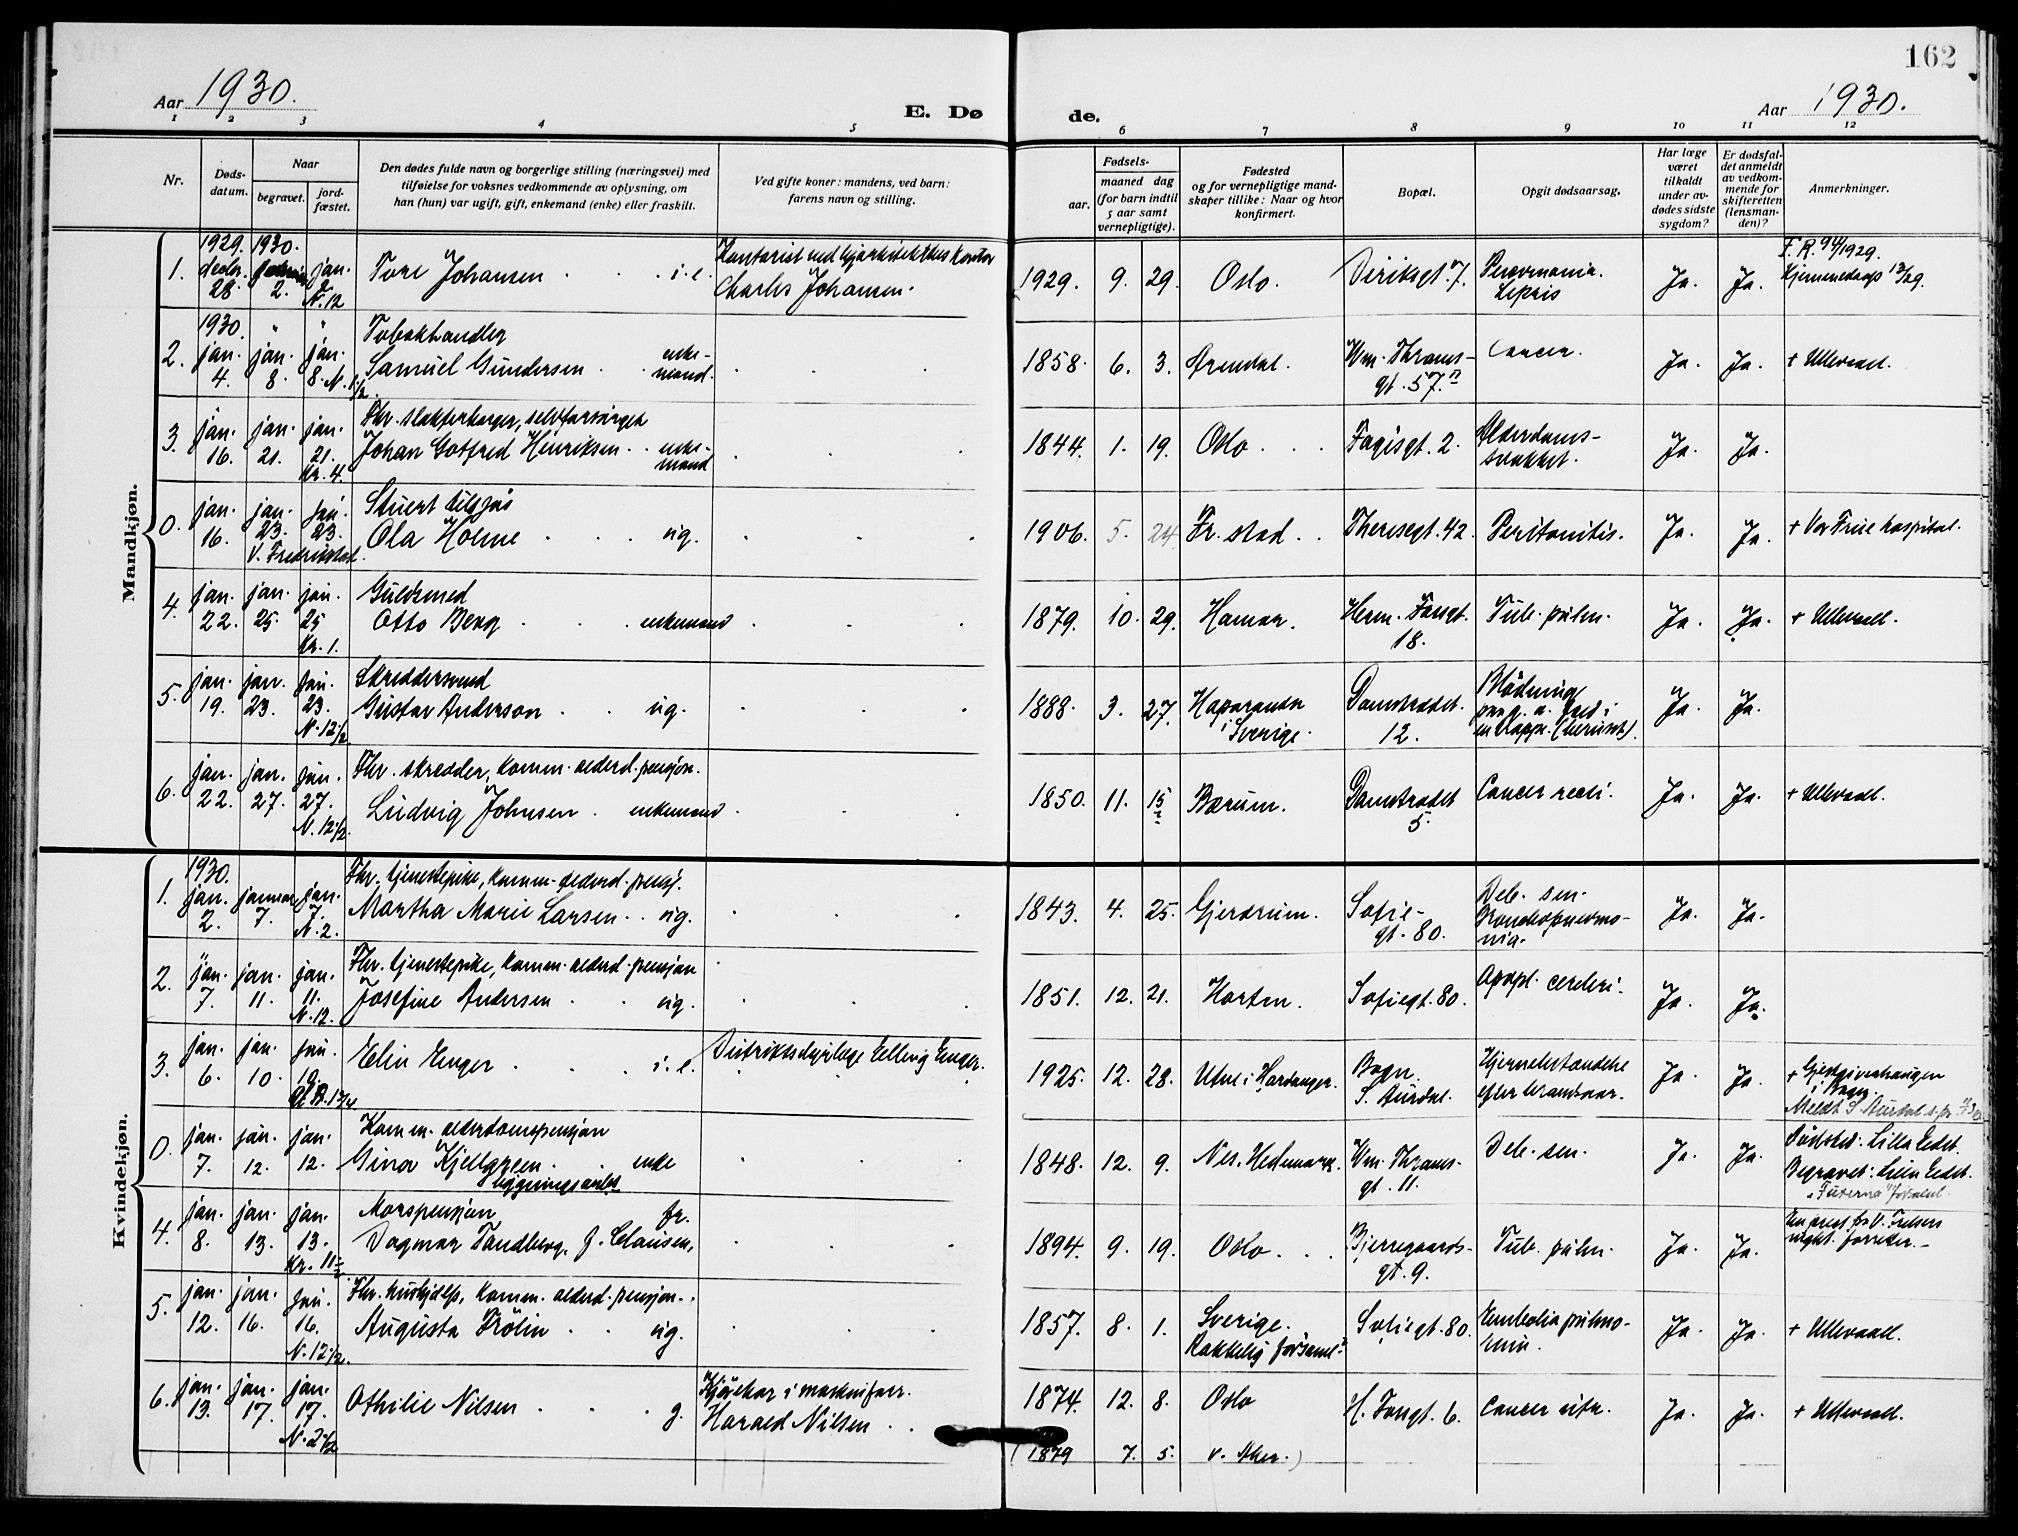 162
Aar 1930.
E. Dø
de.
Aar 1930.
1 2 3 4 5 6 7 8 9 10 11 12
Nr.
Døds-
datum.
Naar
begravet.
jord-
fæstet.
Den dødes fulde navn og borgerlige stilling (næringsvei) med
tilføielse for voksnes vedkommende av oplysning, om
han (hun) var ugift, gift, enkemand (enke) eller fraskilt.
Ved gifte koner: mandens, ved barn:
farens navn og stilling.
Fødsels-
aar.
maaned dag
(for barn indtil
5 aar samt
vernepligtige).
Fødested
og for vernepligtige mand-
skaper tillike: Naar og hvor
konfirmert.
Bopæl.
Opgit dødsaarsag.
Har læge
været
tilkaldt
under av-
dødes sidste
sygdom?
Er dødsfal-
det anmeldt
av vedkom-
mende for
skifteretten
(lensman-
den)?
Anmerkninger.
Mandkjøn.
1.
1929.
decbr.
28.
1930.
2.
jan.
2.
N. 12
Tore Johansen i.e.
Charles Johansen.
1929. 9. 29. Oslo.
Diriksgt. 7.
Ja. Ja.
F. R. 94/1929.
Hjemmedaap 13/29.
2.
1930.
jan.
4.
"
jan.
8.
"
jan.
8. N. 1 1/2
Tobakhandler
Samuel Gundersen enke-
mand.
1858. 6. 3. Arendal.
Wm. Thranes-
gt. 57.
Cancer.
Ja. Ja. + Ullevaal.
3.
jan.
16.
jan.
21.
jan.
21.
Kr. 4.
Fhv. slakterborger, selvforsørget
Johan Gotfred Henriksen enke-
mand
1844. 1. 19. Oslo.
Fagisgt. 2.
Alderdoms-
svakhet.
Ja. Ja.
0.
jan.
16.
jan.
23.
jan.
23.
V. Fredrikstad.
Stuert tilsjøs
Ola Holme ug.
1906. 5. 24. Fr. stad.
Theresegt. 42.
Peritonitis.
Ja. Ja. + Vor Frue hospital.
4.
jan.
22.
jan.
25.
jan.
25
Kr. 1.
Guldsmed
Otto Berg enkemand
1879. 10. 29. Hamar.
Herm. Fossgt.
18.
Tub. pulm.
Ja. Ja. + Ullevaal.
5.
jan.
19.
jan.
23.
jan.
23.
N. 12 1/2
Skreddersvend
Gustav Anderson ug.
1888. 3. 27. Haparanda
i Sverige.
Damstrædet.
12.
Blødning
Ja. Ja.
6.
jan.
22.
jan.
27.
jan.
27.
N. 12 1/2.
Fhv. skredder, komm. alderd. pensjon.
Ludvig Johnsen enkemand
1850. 11. 15 Bærum.
Damstrædet
5.
Cancer recti.
Ja. Ja. + Ullevaal.
Kvindekjøn.
1.
1930.
jan.
2.
januar
7.
jan.
7.
N. 2.
Fhv. tjenestepike, komm. alderd. pensj.
Martha Marie Larsen ug.
1843. 4. 25. Gjerdrum.
Sofie-
gt. 80.
Deb. sen.
Bronchopneumo-
nia.
Ja. Ja.
2.
"
jan.
7.
jan.
11.
jan.
11.
N. 12.
Fhv. tjenestepike, komm. alderd. pensjon
Josefine Andersen ug.
1851. 12. 21. Horten.
Sofiegt. 80.
Apopl. cerebri.
Ja. Ja.
3.
jan.
6.
jan.
10.
jan.
10.
Elin Enger i.e.
Distriktsdyrlæge Elling Enger.
1925. 12. 28. Utne i Hardanger.
Bagn
S. Aurdal.
Hjernebetændelse
efter brandsaar.
Ja. Ja.
+ Gjestgiverhaugen
i Bagn.
Meldt S. Aurdal s.pr.
0.
jan.
7.
jan.
12.
jan.
12.
Komm. alderdomspensjon
Gina Kjellgreen enke
bygningsarb.
1848. 12. 9. Nes. Hedemark.
Wm. Thranes-
gt. 11.
Deb. sen.
Ja. Ja.
Dødsted: Lilla Edet.
Begravet: Lilla Edet.
4.
jan.
8.
jan.
13.
jan.
13.
Kr. 11 1/2
Morspensjon fr.
Dagmar Tandberg, f. Clausen,
1894. 9. 19. Oslo.
Bjerregaards-
gt. 9.
Tub. pulm.
Ja. Ja.
5.
jan.
12.
jan.
16.
jan.
16.
N. 12 1/2.
Fhv. hushjælp, komm. alderd. pensjon.
Augusta Frölin ug.
1857. 8. 1. Sverige.
Sofiegt. 80.
Embolia pulmo-
num.
Ja. Ja. + Ullevaal.
6.
jan.
13.
jan.
17.
jan.
17.
N. 2 1/2
Othilie Nilsen g.
Kjørekar i maskinforr.
Harald Nilsen
1874. 12. 8. Oslo
H. Fossgt. 6.
Cancer uter.
Ja. Ja. + Ullevaal.
(1879 7. 5. v. Aker.)